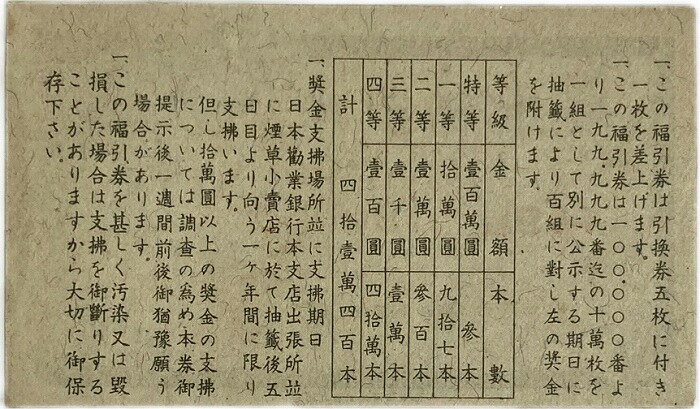 一、この福引券は引換券五枚に付き
一枚を差上げます。
一、この福引券は一〇〇.〇〇〇番よ
り一九九.九九九番迄の十萬枚を
一組として別に公示する期日に
抽籤により百組に對し左の奬金
を附けます。
等級 金額 本數
特等 壹百萬圓 參本
一等 拾萬圓 九拾七本
二等 壹萬圓 參百本
三等 壹千圓 壹萬本
四等 壹百圓 四拾萬本
計 四拾壹萬四百本
一、奬金支拂場所並に支拂期日
日本勸業銀行本支店出張所並
に煙草小賣店に於て抽籤後五
日目より向う一ヶ年間に限り
支拂います。
但し拾萬圓以上の奬金の支拂
については調査の為め本券御
提示後一週間前後御猶豫願う
場合があります。
一、この福引券を甚しく汚染又は毀
損した場合は支拂を御斷りする
ことがありますから大切に御保
存下さい。